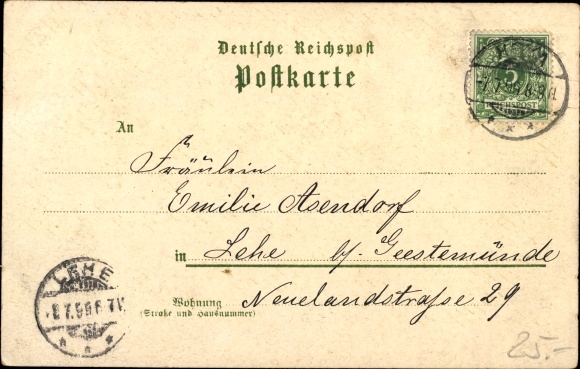 Deutsche Reichspost
Postkarte
5
REICHSPOST
An
Fräulein
Emilie Asendorf
in Lehe b/ Geestemünde
Wohnung Neuelandstraße 29
(Straße und Hausnummer)
LEHE
25.-